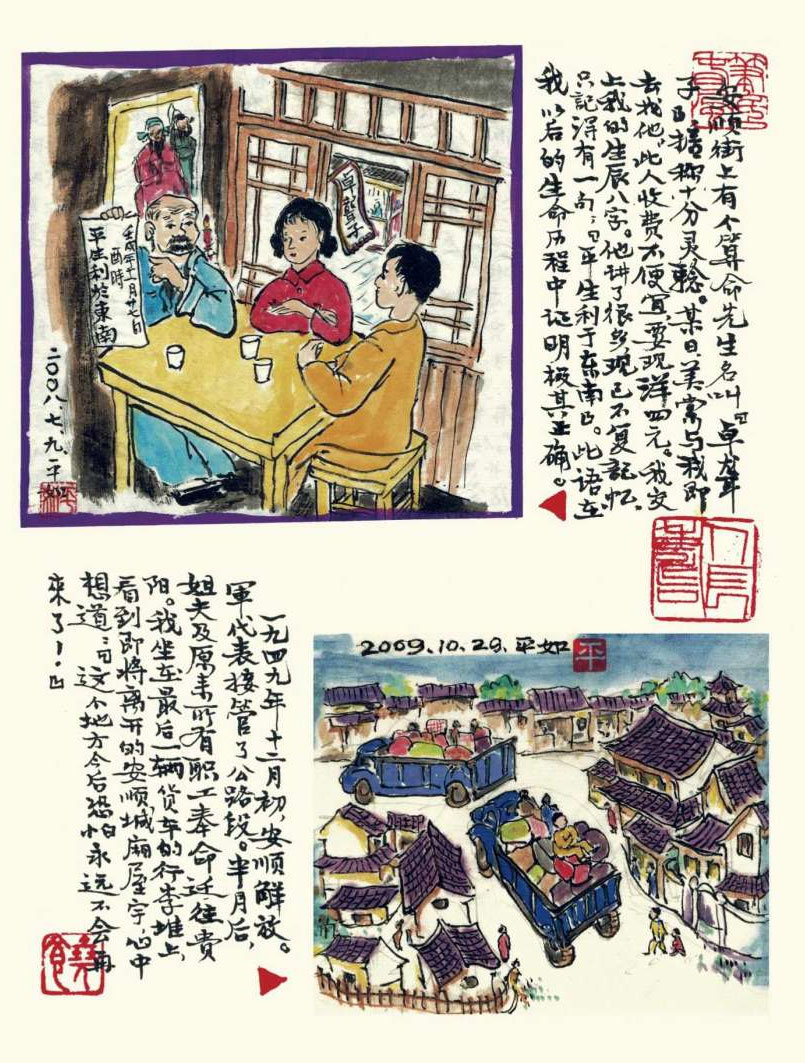 安顺街上有个算命先生名叫『卓聋
子』據称十分灵验。某日,美棠与我即
去找他,此人收费不便宜,要现洋四元。我交
上我的生辰八字。他讲了很多现已不复记忆,
只记得有一句:『平生利于东南』。此语在
我以后的生命历程中证明极其正确。
卓聾子
壬戌年十一月廿七日
酉時
平生利於東南
二〇〇八.七.九.平
2009.10.29.平如
平
一九四九年十二月初,安顺解放。
軍代表接管了公路段。半月后,
姐夫及原来所有职工奉命迁往贵
阳。我坐在最后一辆货车的行李堆上,
看到即将离开的安顺城厢屋宇,心中
想道:『这个地方今后恐怕永远不会再
来了!』